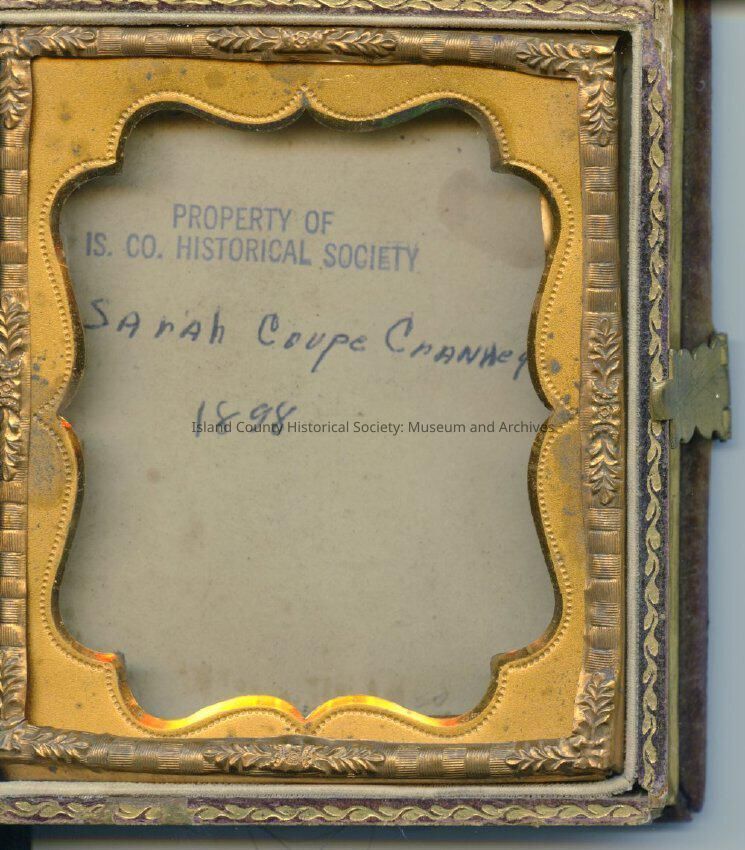 PROPERTY OF
IS. CO. HISTORICAL SOCIETY
Sarah Coupe Cranney
1898
Island County Historical Society: Museum and Archives